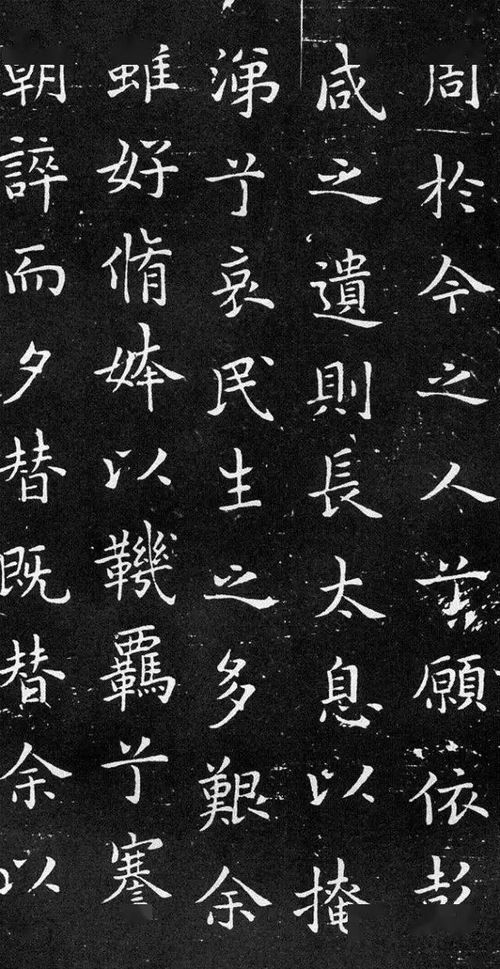 周於今之人兮願依彭
咸之遺則長太息以掩
涕兮哀民生之多艱余
雖好脩姱以鞿羈兮謇
朝誶而夕替既替余以